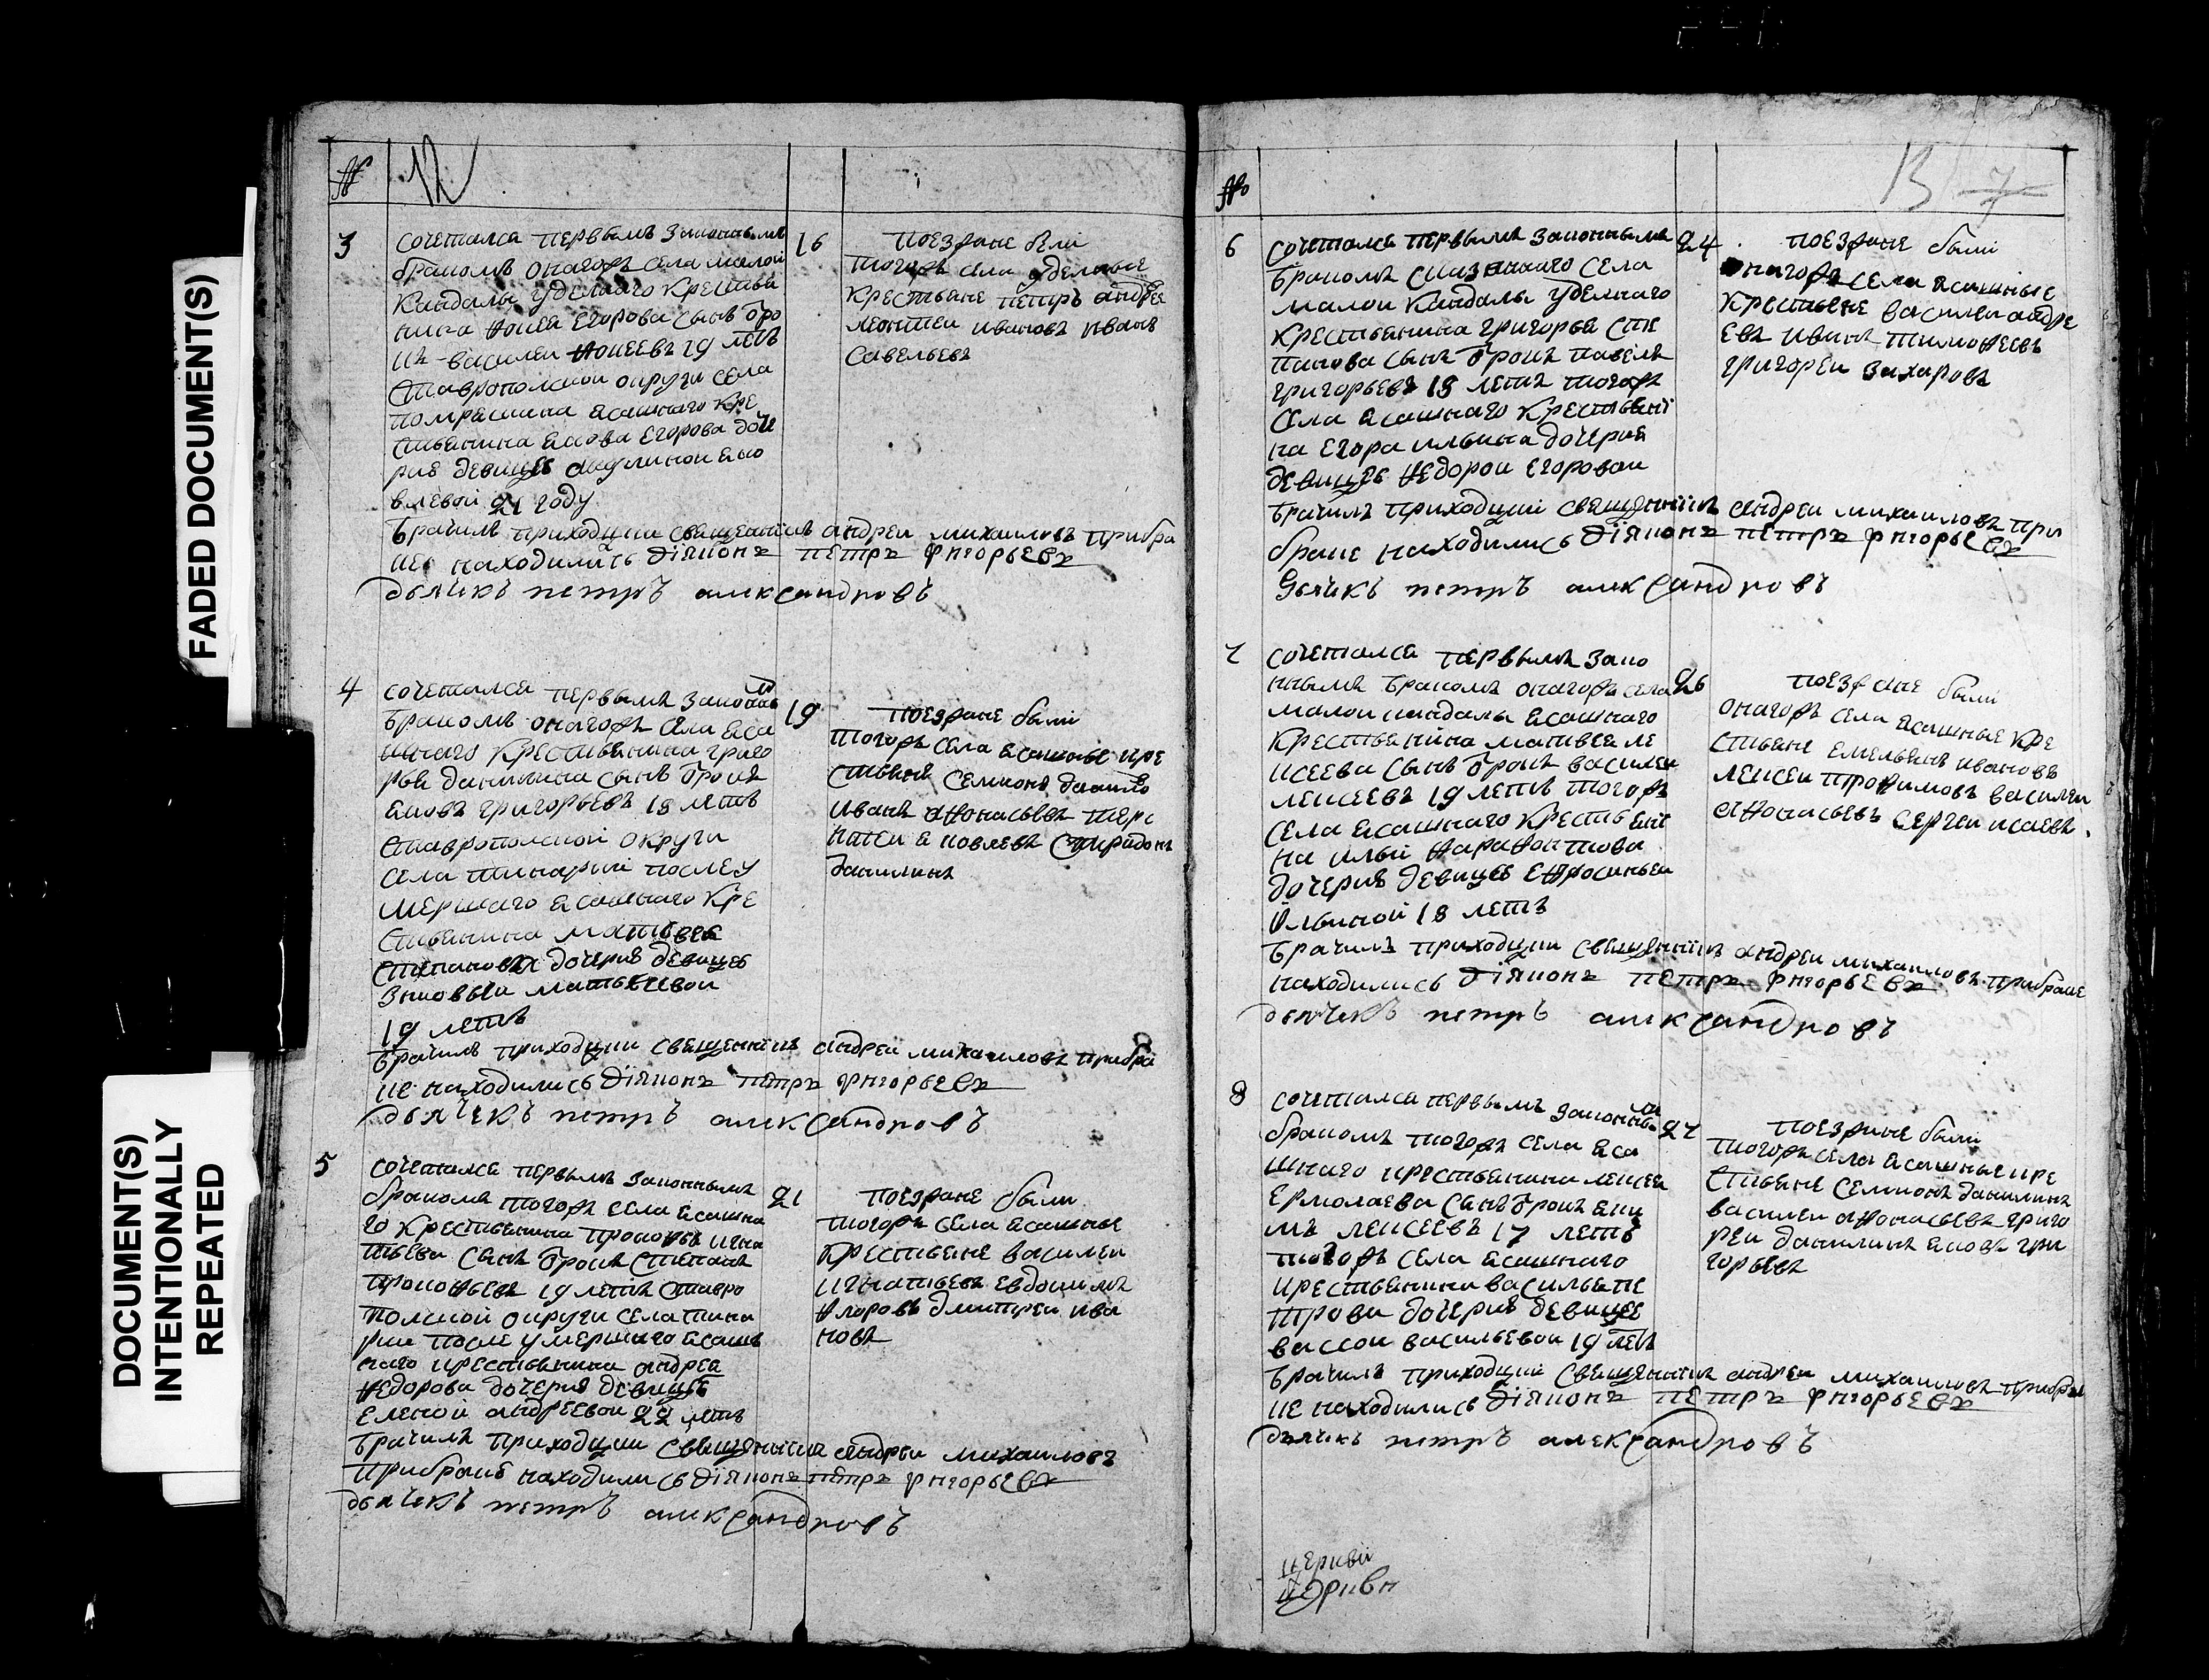 FADED DOCUMENT(S)
DOCUMENT(S)
INTENTIONALLY
REPEATED
№
12
3
сочетался первымъ законнымъ
бракомъ онагожъ села малой
Кандалы удѣлнаго крестья
нина Фокея Егорова сынъ отро
къ василеи Фокеевъ 19 летъ
Ставрополской округи села
помрескина ясашнаго кре
стьянина якова Егорова доче
рию девицею акулиной яко
влевой 21 году
брачилъ приходцкии священникъ андреи михаиловъ прибра
ке находились діяконъ петръ григорьевъ
дьячекъ петръ александровъ
16
поезжане были
тогожъ села удельные
крестьяне петръ андрее
леонтеи ивановъ иванъ
савельевъ
4
сочетался первымъ законнымъ
бракомъ онагожъ села яса
шнаго крестьянина григо
рья данилина сынъ отрокъ
яковъ григорьевъ 18 летъ
Ставрополской округи
села тинарки послеу
мершаго ясашнаго кре
стьянина матвея
степанова дочерию девицею
зиновьеи матвеевои
19 летъ
брачилъ приходцкии священникъ андреи михаиловъ прибра
ке находились діяконъ петръ григорьевъ
дьячекъ петръ александровъ
19
поезжане были
тогожъ села ясашные кре
стьяне семионъ данило
иванъ афонасьевъ тере
нтеи яковлевъ спиридонъ
данилинъ
5
сочетался первымъ законнымъ
бракомъ тогожъ села ясашна
го крестьянина прокофья игна
тьева сынъ отрокъ степанъ
прокофьевъ 19 летъ ставро
полской округи села тина
рки после умершаго ясашъ
наго крестьянина андрея
Федорова дочерию девицею
еленой андреевои 22 летъ
брачилъ приходцкии священникъ андреи михаиловъ
прибраке находились діяконъ петръ григорьевъ
дьячекъ петръ александровъ
21
поезжане были
тогожъ села ясашные
крестьяне василеи
игнатьевъ евдокимъ
флоровъ дмитреи ива
новъ
№
13 7
6
сочетался первымъ законнымъ
бракомъ сказаннаго села
малои Кандалы удѣлнаго
крестьянина григорья сте
панова сынъ отрокъ павелъ
григорьевъ 18 летъ тогожъ
села ясашнаго крестьяни
на егора ильина дочерию
девицею Федорои егоровои
брачилъ приходцкии священникъ андреи михаиловъ при
браке находились діяконъ петръ григорьевъ
дьячекъ петръ александровъ
24
поезжане были
онагожъ села ясашные
крестьяне василеи андре
евъ иванъ тимофеевъ
григореи захаровъ
7
сочетался первымъ зако
ннымъ бракомъ онагожъ села
малои кандалы ясашнаго
крестьянина матвея ле
ксеева сынъ отрокъ василеи
лексеевъ 19 летъ тогожъ
села ясашнаго крестьяни
на ильи фарафонтова
дочерию девицею ефросиньеи
ильиной 18 летъ
брачилъ приходцкии священникъ андреи михаиловъ прибраке
находились діяконъ петръ григорьевъ
дьячекъ петръ александровъ
26
поезжане были
онагожъ села ясашные кре
стьяне емельянъ ивановъ
лексеи трофимовъ василеи
афонасьевъ сергеи исаевъ.
8
сочетался первымъ законнымъ
бракомъ тогожъ села яса
шнаго крестьянина лексея
ермолаева сынъ отрокъ еки
мъ лексеевъ 17 летъ
тогожъ села ясашнаго
крестьянина василья пе
трова дочерию девицею
вассои васильевои 19 летъ
брачилъ приходцкии священникъ андреи михаиловъ прибра
ке находились діяконъ петръ григорьевъ
дьячекъ петръ александровъ
27
поезжане были
тогожъ села ясашные кре
стьяне семионъ данилинъ
василеи афонасьевъ григо
реи данилинъ яковъ гри
горьевъ
церкви
церкви